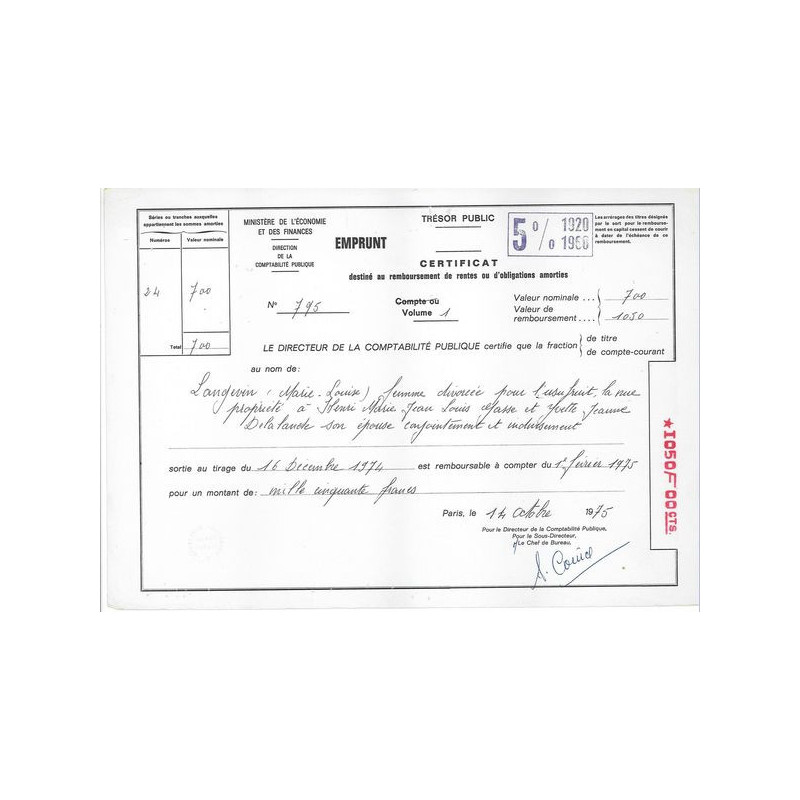 Séries ou tranches auxquelles
appartiennent les sommes amorties
Numéros Valeur nominale
24 700
Total 700
MINISTÈRE DE L'ÉCONOMIE
ET DES FINANCES
DIRECTION
DE LA
COMPTABILITÉ PUBLIQUE
EMPRUNT
TRÉSOR PUBLIC
5 0/0 1920 1980
Les arrérages des titres désignés
par le sort pour le rembourse-
ment en capital cessent de courir
à dater de l'échéance de ce
remboursement.
CERTIFICAT
destiné au remboursement de rentes ou d'obligations amorties
N° 795
Compte ou
Volume 1
Valeur nominale ... 700
Valeur de
remboursement .... 1050
LE DIRECTEUR DE LA COMPTABILITÉ PUBLIQUE certifie que la fraction
de titre
de compte-courant
au nom de:
Langevin (Marie-Louise) femme divorcée pour l'usufruit, la nue
propriété à Henri Marie Jean Louis et Jeanne
son épouse conjointement et indivisément
sortie au tirage du 16 Decembre 1974 est remboursable à compter du 1er février 1975
pour un montant de: mille cinquante francs
Paris, le 14 octobre 1975
Pour le Directeur de la Comptabilité Publique,
Pour le Sous-Directeur,
Le Chef de Bureau,
★1050F00CTS.